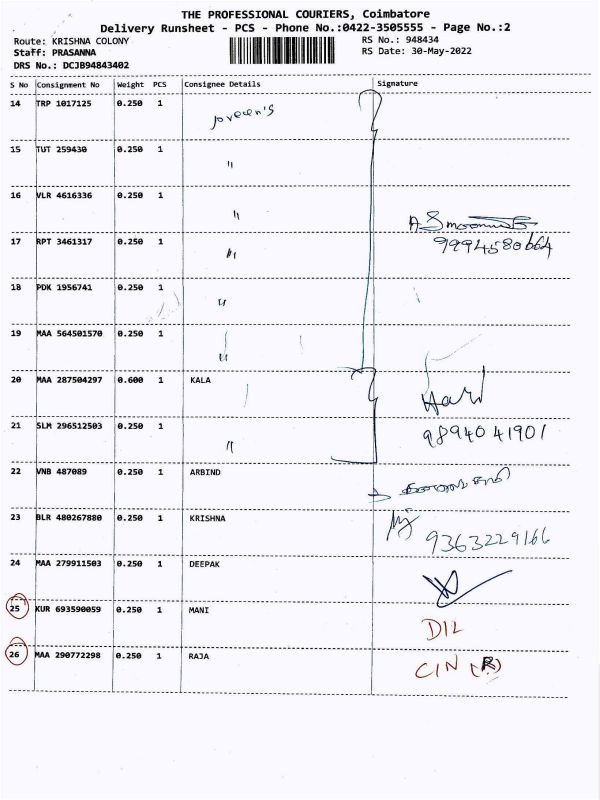 THE PROFESSIONAL COURIERS, Coimbatore
Delivery Runsheet - PCS - Phone No.:0422-3505555 - Page No.:2
Route: KRISHNA COLONY RS No.: 948434
Staff: PRASANNA RS Date: 30-May-2022
DRS No.: DCJB94843402
S No Consignment No Weight PCS Consignee Details Signature
14 TRP 1017125 0.250 1
15 TUT 259430 0.250 1 "
16 VLR 4616336 0.250 1 "
17 RPT 3461317 0.250 1 "
9994580664
18 PDK 1956741 0.250 1 "
19 MAA 564501570 0.250 1 "
20 MAA 287504297 0.600 1 KALA
Hari
21 SLM 296512503 0.250 1 " 9894041901
22 VNB 487089 0.250 1 ARBIND
23 BLR 480267880 0.250 1 KRISHNA
9363229166
24 MAA 279911503 0.250 1 DEEPAK
25 KUR 693590059 0.250 1 MANI
DIL
26 MAA 290772298 0.250 1 RAJA CIN (R)